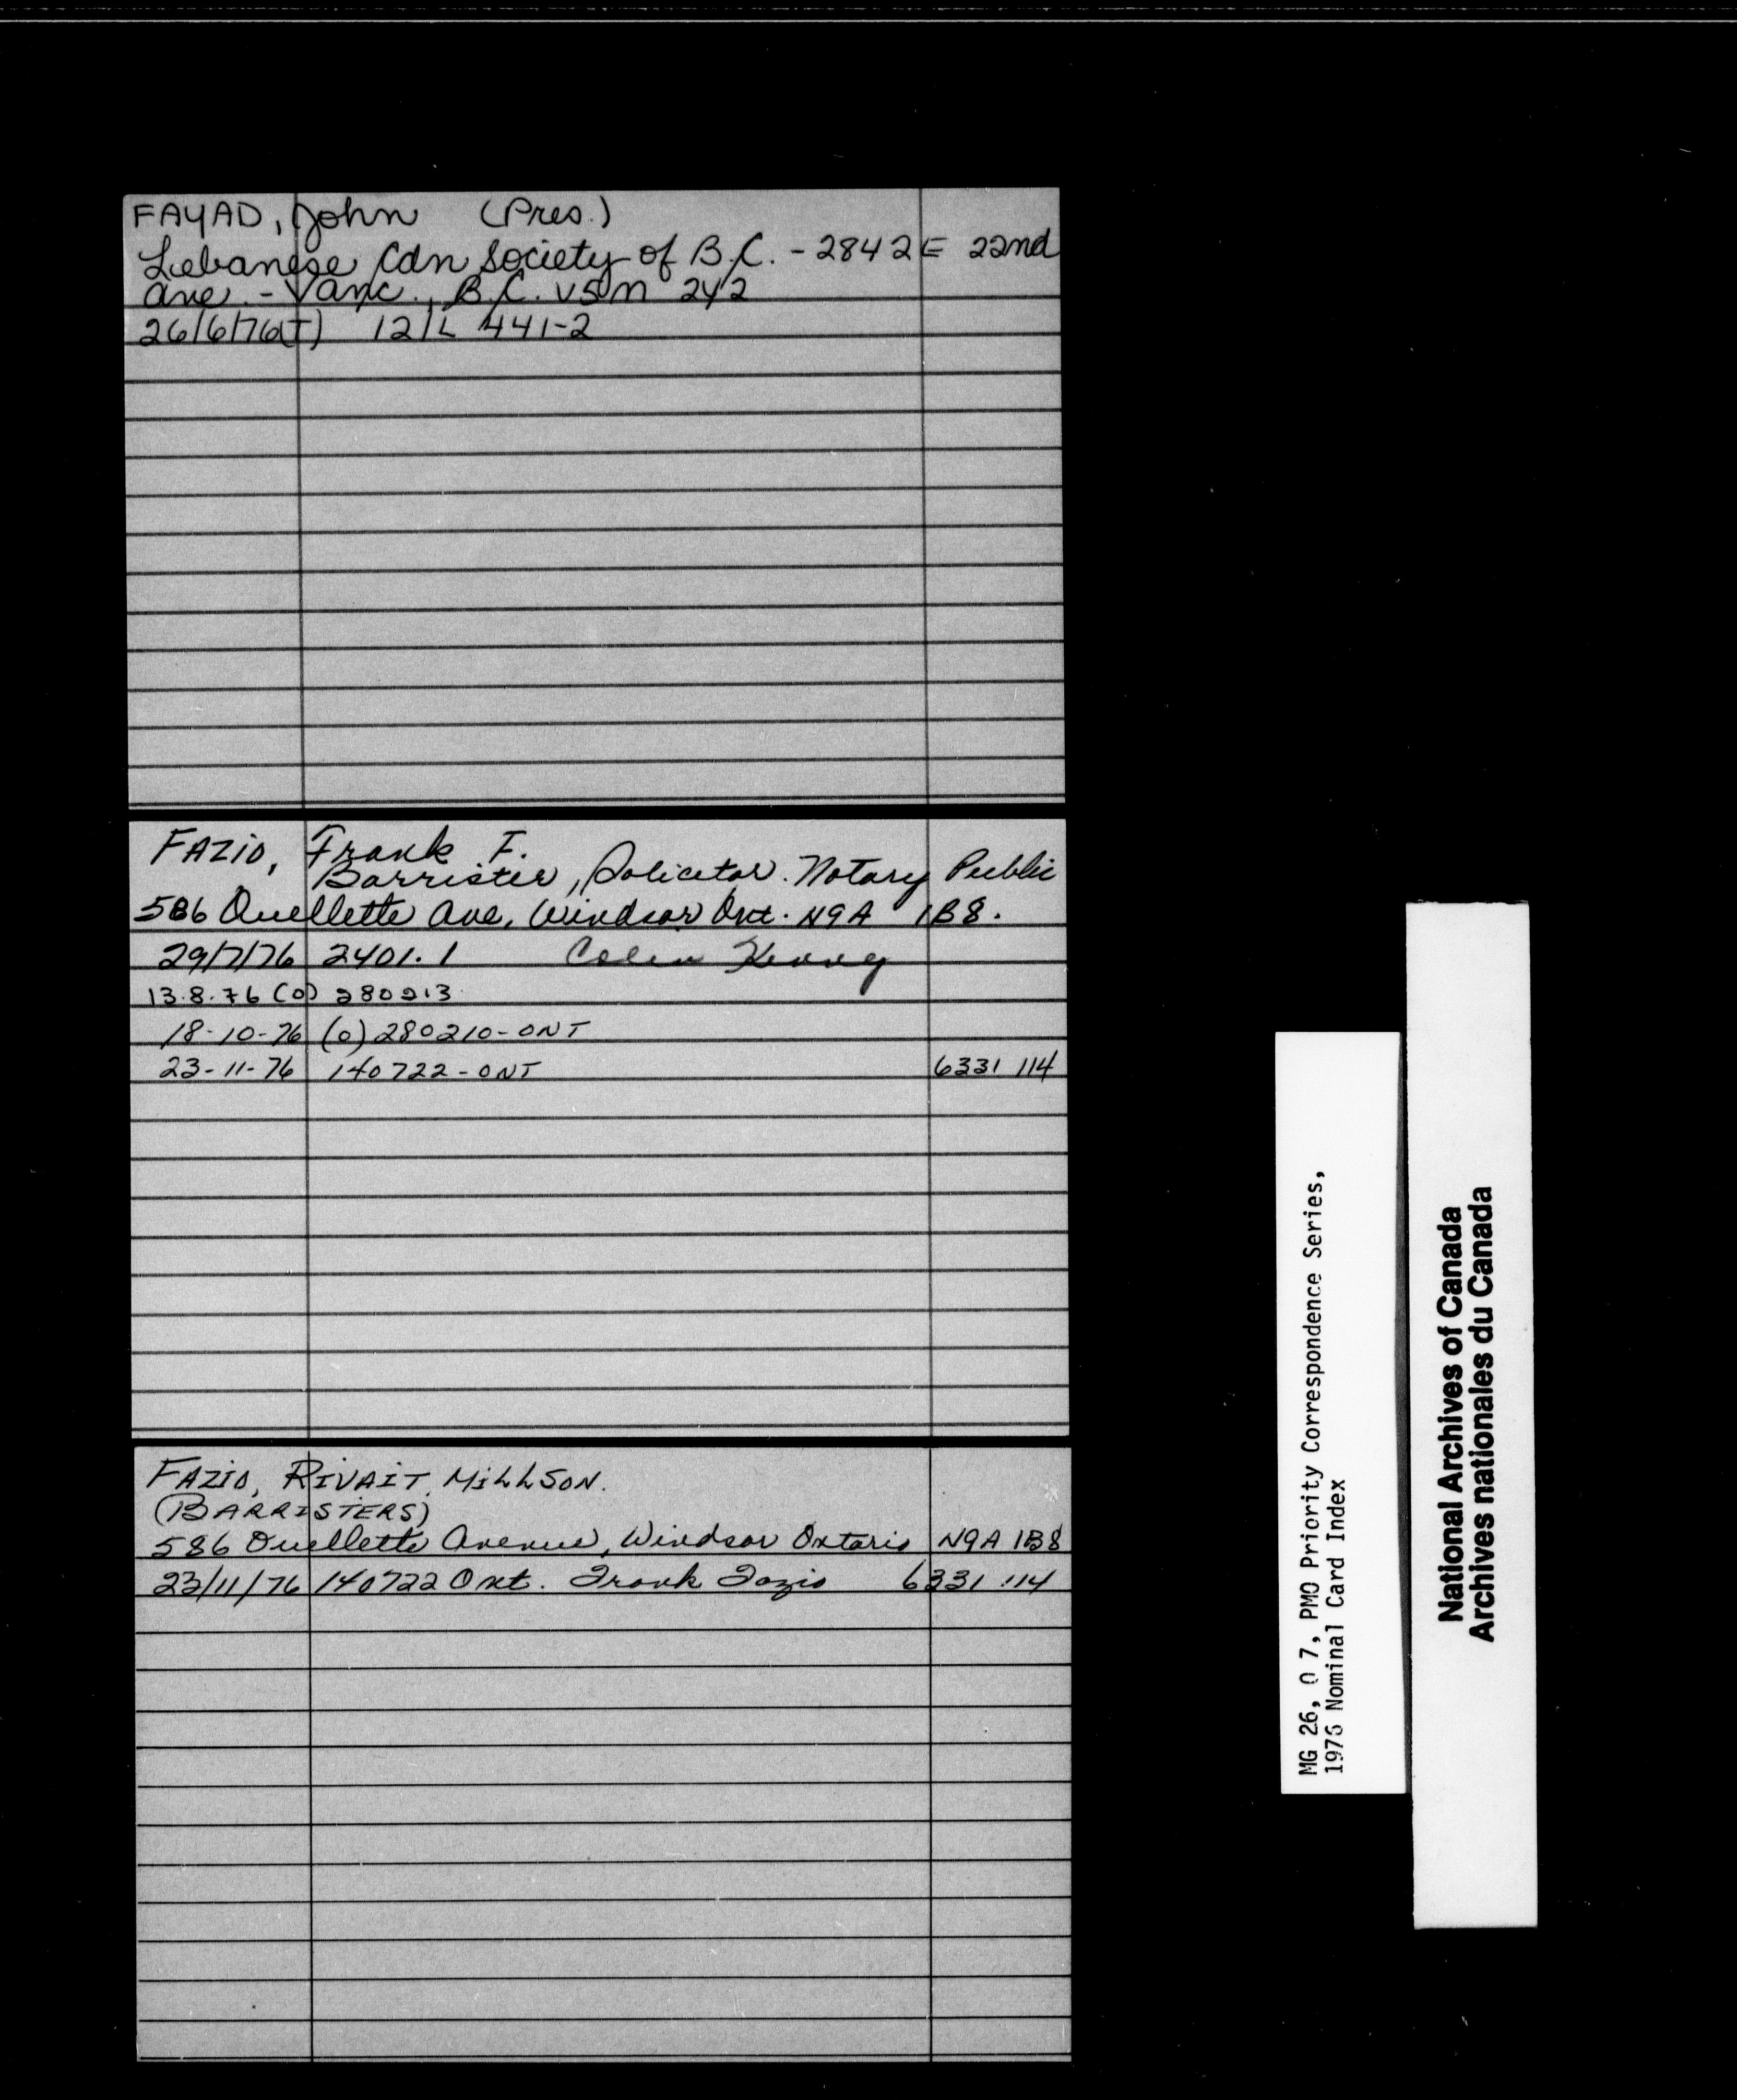 FAYAD, John (Pres.)
Lebanese Cdn Society of B.C. - 2842 E 22nd
Ave. - Vanc., B.C. V5M 2Y2
26/6/76(T) 12/L 441-2
FAZIO, Frank F.
Barrister, Solicitor. Notary Public
586 Ouellette Ave, Windsor Ont. N9A 1B8.
29/7/76 2401.1 Colin Kenny
13.8.76 (O) 280213
18-10-76 (O) 280210-ONT
23-11-76 140722-ONT 6331 114
FAZIO, RIVAIT, MILLSON.
(BARRISTERS)
586 Ouellette Avenue, Windsor Ontario N9A 1B8
23/11/76 140722 Ont. Frank Fazio 6331 114
MG 26, O 7, PMO Priority Correspondence Series,
1976 Nominal Card Index
National Archives of Canada
Archives nationales du Canada